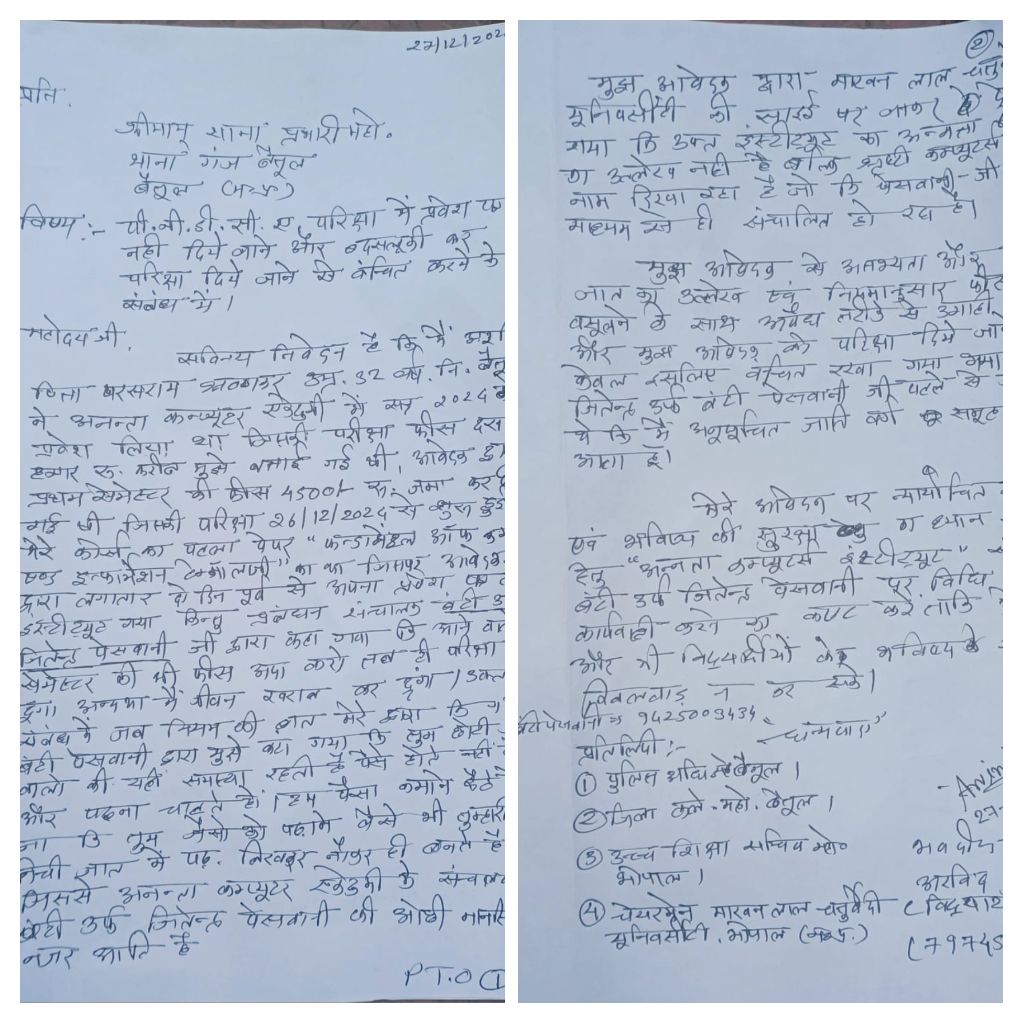 27/12/202
प्रति,
श्रीमान् थाना प्रभारी महो.
थाना गंज बैतूल
बैतूल (म.प्र.)
विषय:- पी.जी.डी.सी.ए. परिक्षा में प्रवेश पत्र
नही दिये जाने और बदसलूकी कर
परिक्षा दिये जाने से वंचित करने के
संबंध में।
महोदय जी,
सविनय निवेदन है कि मैं
पिता परसराम उम्र. 32 वर्ष. नि. बैतूल
ने अनन्ता कम्प्यूटर एकेडमी में सत्र 2024 में
प्रवेश लिया था जिसकी परीक्षा फीस दस
हजार रू. करीब मुझे बताई गई थी, आवेदक द्वा
प्रथम सेमेस्टर की फीस 4500/- रू. जमा कर दि
गई थी जिसकी परिक्षा 26/12/2024 से शुरू हुई
मेरे कोर्स का पहला पेपर "फन्डामेंटल ऑफ कम
एण्ड इन्फार्मेशन टेक्नालजी" का था जिसपर आवेदक
द्वारा लगातार दो दिन पूर्व से अपना प्रवेश पत्र
इंस्टीट्यूट गया किन्तु प्रबंधन संचालक बंटी उ
जितेन्द्र पेसवानी जी द्वारा कहा गया कि आने वा
सेमेस्टर की भी फीस अदा करो तब ही परिक्षा
दूंगा अन्यथा मैं जीवन खराब कर दूंगा। उक्त
संबंध में जब नियम की बात मेरे द्वारा कि ग
बंटी पेसवानी द्वारा मुझे कहा गया कि तुम छोटी
वालो की यही समस्या रहती है पैसे होते नहीं
और पढ़ना चाहते हो। हम पैसा कमाने बैठे
ना कि तुम जैसो को पढ़ाने वैसे भी तुम्हारी
नीची जात में पढ़. लिखकर नौकर ही बनते है
जिससे अनन्ता कम्प्यूटर एकेडमी के संचालक
बंटी उर्फ जितेन्द्र पेसवानी की ओछी मानसि
नजर आति है
P.T.O ①
②
मुझ आवेदक द्वारा माखन लाल चतु
यूनिवर्सीटी की साईट पर जाकर दे
गया कि उक्त इंस्टीट्यूट का अनन्ता
का उल्लेख नही है बल्कि सृष्टी कम्प्यूटर्स
नाम दिखा रहा है जो कि पेसवानी जी
माध्यम से ही संचालित हो रहा है।
मुझ आवेदक से असभ्यता और
जात का उल्लेख एवं नियमानुसार फीस
वसूलने के साथ अवैध तरीके से उगाही
और मुझ आवेदक को परिक्षा दिये जाने
केवल इसलिए वंचित रखा गया क्या
जितेन्द्र उर्फ बंटी पेसवानी जी पहले से
थे कि मैं अनुसूचित जाति वर्ग समूह
आता हूं।
मेरे आवेदन पर न्यायोचित
एवं भविष्य की सुरक्षा का ध्यान
हेतु "अनन्ता कम्प्यूटर्स इंस्टीट्यूट"
बंटी उर्फ जितेन्द्र पेसवानी पर विधि
कार्यवाही करने का कष्ट करें ताकि
और भी विद्यार्थीयों के भविष्य से
खिलवाड़ न कर सके।
बंटी पेसवानी = 9425003434
"धन्यवाद"
प्रतिलिपी:-
① पुलिस अधि. महो. बैतूल।
② जिला कले. महो. बैतूल।
③ उच्च शिक्षा सचिव महो.
भोपाल।
④ चेयरमेन माखन लाल चतुर्वेदी
यूनिवर्सीटी. भोपाल (म.प्र.)
27-
भवदीय
अरविंद
(विद्यार्थ
(79745